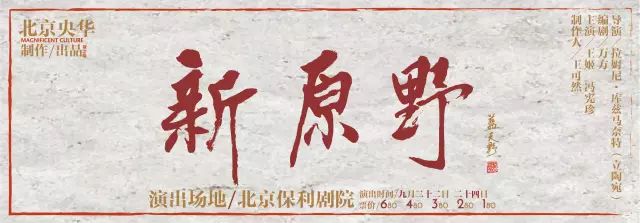 北京央华
MAGNIFICENT CULTURE
制作/出品
新原野
导演 拉姆尼·库兹马奈特(立陶宛)
编剧 万方
主演 王姬 冯宪珍
制作人 王可然
演出场地/北京保利剧院
演出时间/九月二十二日 二十四日
票价/680 480 380 280 180